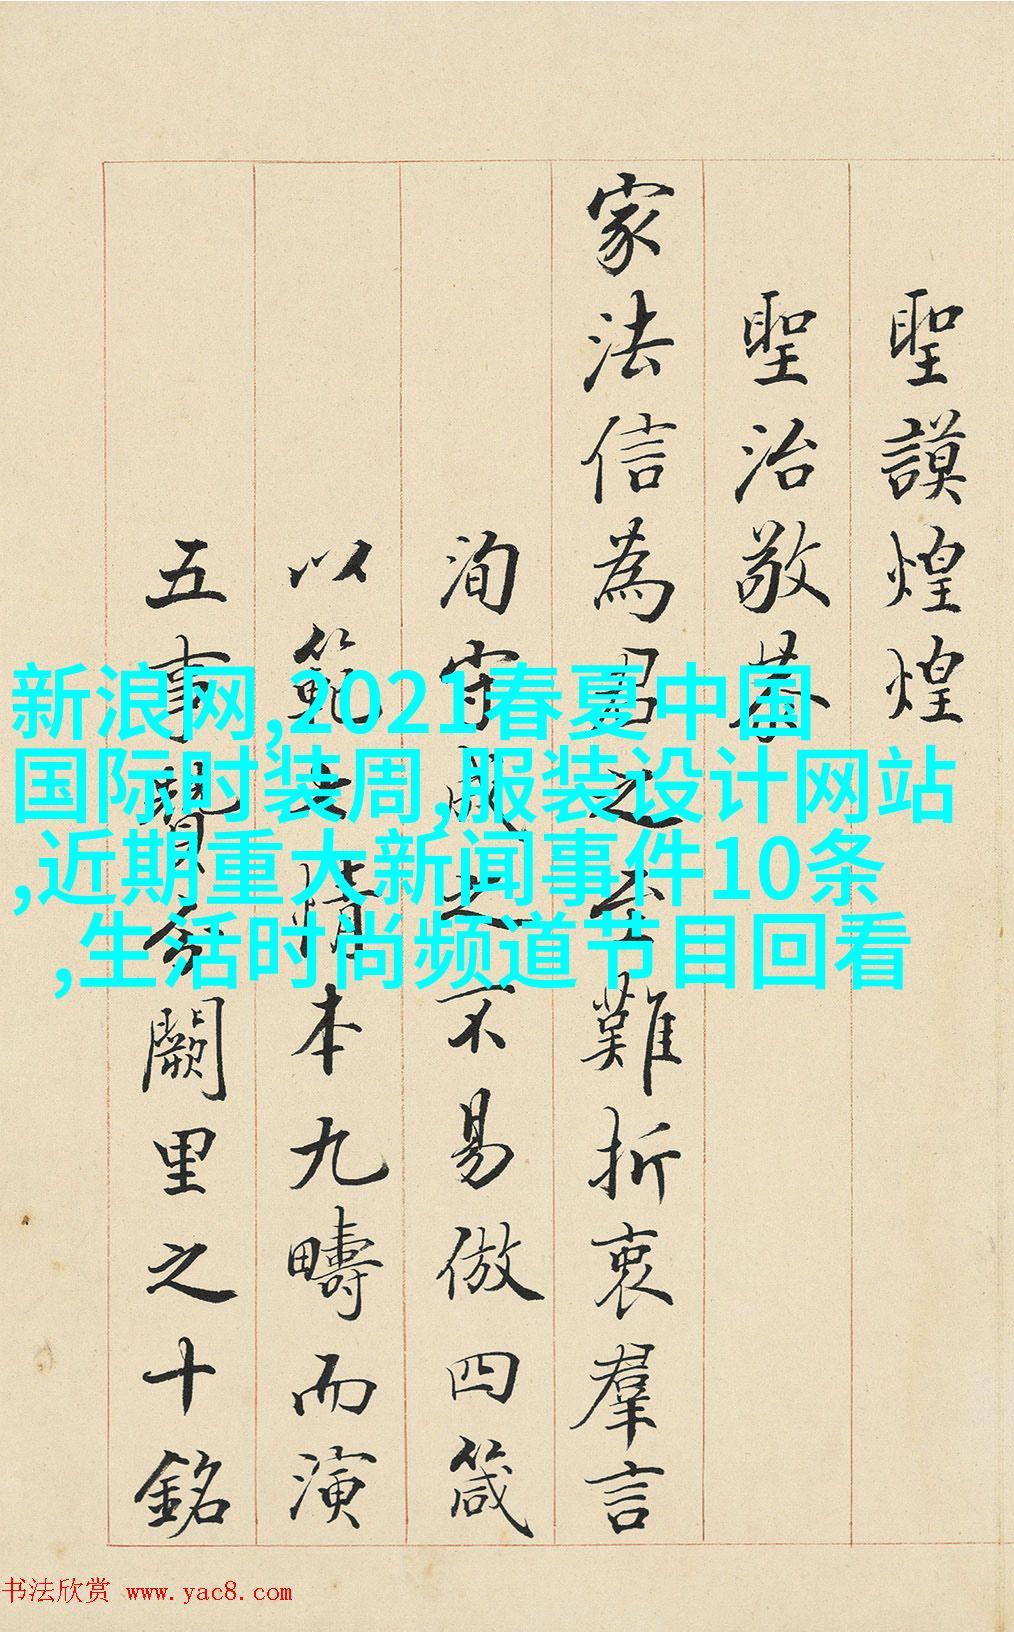 聖謨煌煌
聖治敬恭
家法信為君之至難折衷羣言
洵守成之不易倣四箴
以範情本九疇而演
五事闕里之十銘
新浪网,2021春夏中国
国际时装周,服装设计网站
,近期重大新闻事件10条
,生活时尚频道节目回看
书法欣赏 www.yac8.com